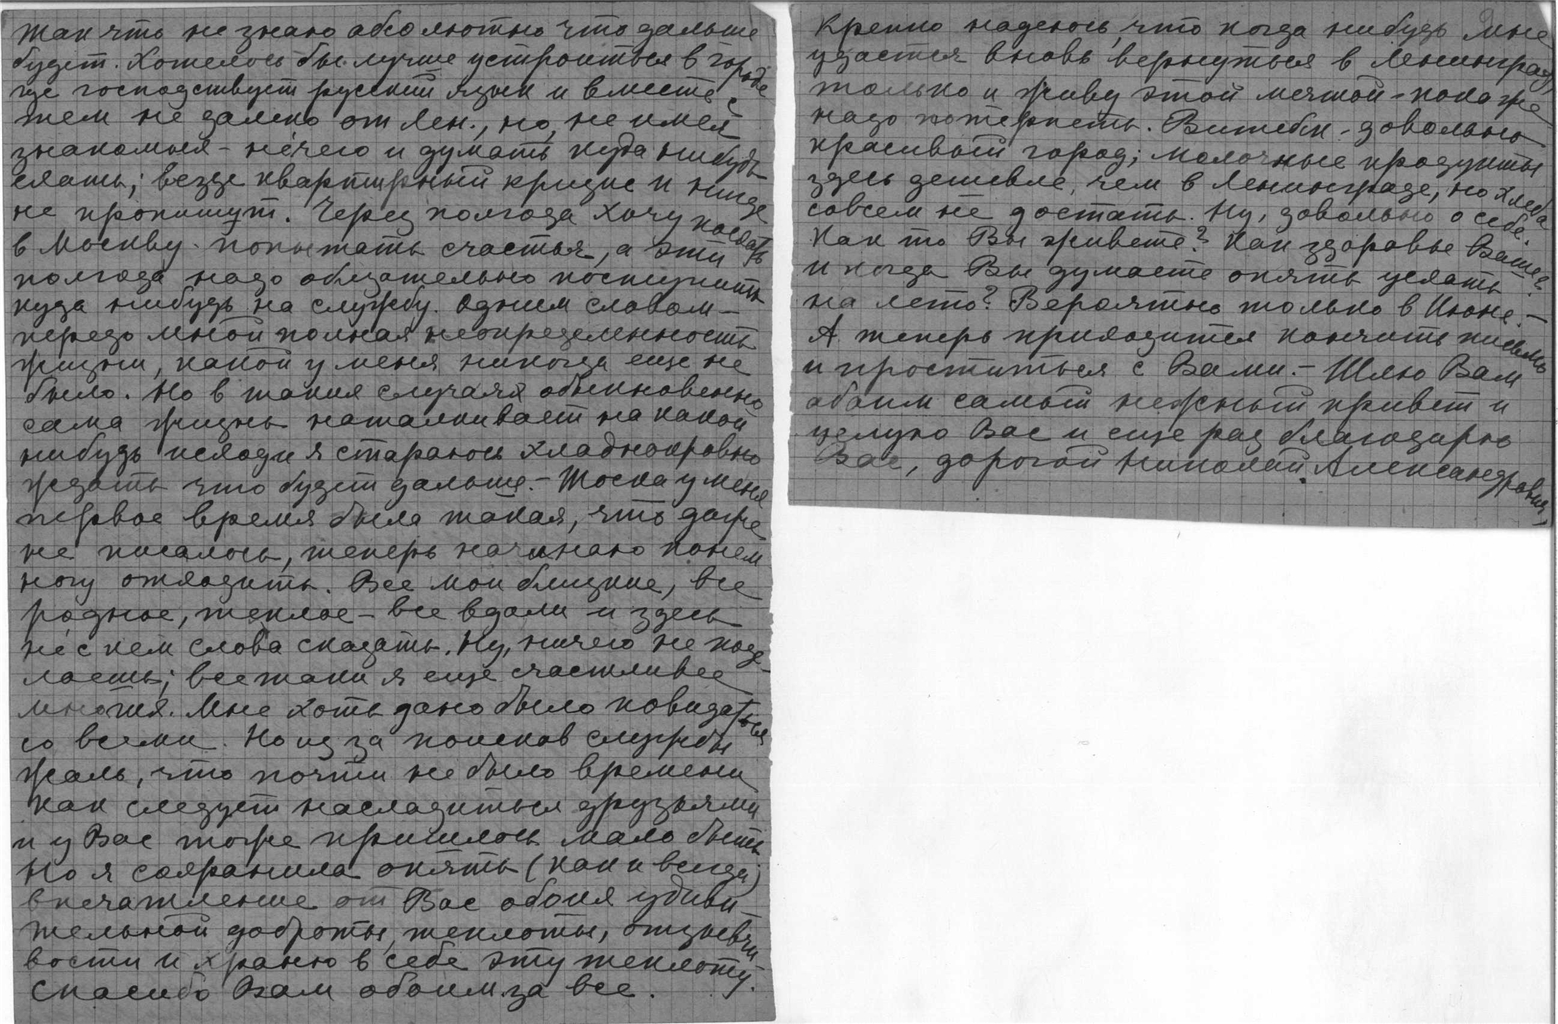 так что не знаю абсолютно что дальше
будет. Хотелось бы лучше устроиться в городе
где господствует русский язык и вместе с
тем не далеко от Лен., но, не имея
знакомых – не́чего и думать куда нибудь
ехать; везде квартирный кризис и нигде
не пропишут. Через полгода хочу поехать
в Москву попытать счастья, а эти
полгода надо обязательно поступить
куда нибудь на службу. Одним словом –
передо мной полная неопределенность
жизни, какой у меня никогда еще не
было. Но в таких случаях обыкновенно
сама жизнь наталкивает на какой
нибудь исход и я стараюсь хладнокровно
ждать что будет дальше. – Тоска у меня
первое время была такая, что даже
не писалось, теперь начинаю понем
ногу отходить. Все мои близкие, все
родное, теплое – все вдали и здесь
не́ с кем слова сказать. Ну, ничего не поде-
лаешь; все таки я еще счастливее
многих. Мне хоть дано было повидаться
со всеми. Но из за поисков службы
жаль, что почти не было времени
как следует насладиться друзьями
и у Вас тоже пришлось мало быть.
Но я сохранила опять (как и всегда)
впечатление от Вас обоих удиви-
тельной доброты, теплоты, отзывчи-
вости и храню в себе эту теплоту.
Спасибо Вам обоим за все.
Крепко надеюсь, что когда нибудь мне
удастся вновь вернуться в Ленинград,
только и живу этой мечтой – пока же
надо потерпеть. Витебск – довольно
красивый город; молочные продукты
здесь дешевле, чем в Ленинграде, но хлеба
совсем не достать. Ну, довольно о себе.
Как то Вы живете? Как здоровье Ваше?
и когда Вы думаете опять уехать
на лето? Вероятно только в Июне. –
А теперь приходится кончить письмо
и проститься с Вами. – Шлю Вам
обоим самый нежный привет и
целую Вас и еще раз благодарю
Вас, дорогой Николай Александрович,